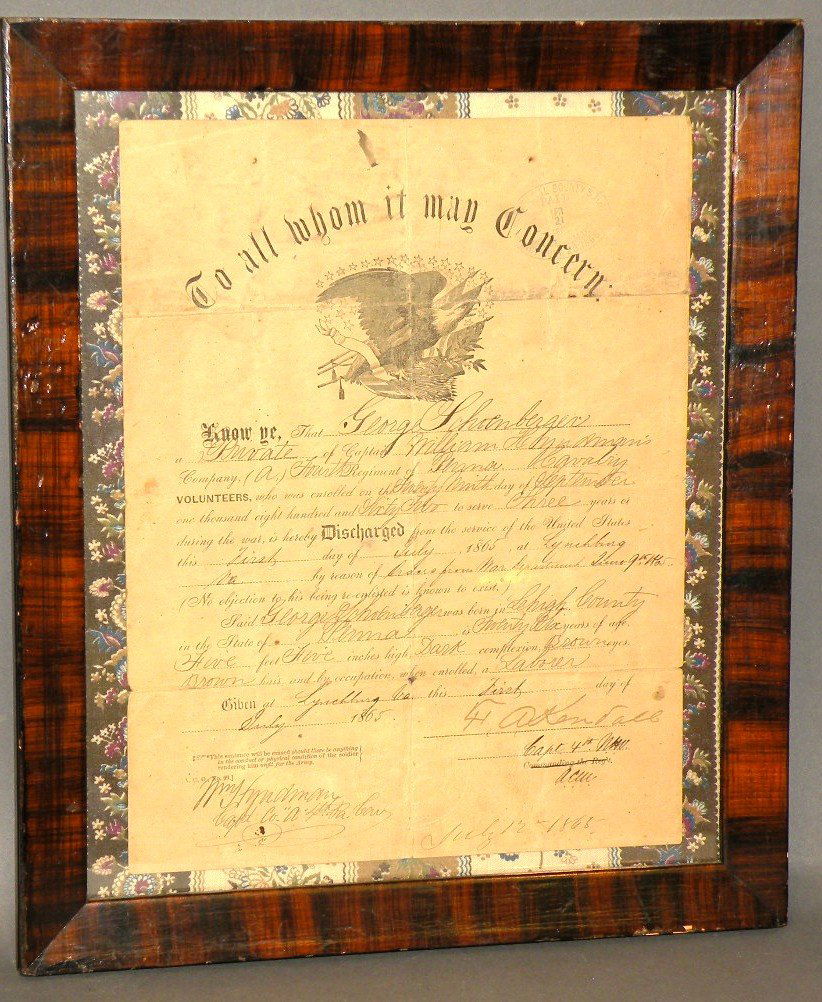 To all whom it may Concern.
Know ye, That George Schoenberger
a Private of Captain William Hyndman's
Company, (A.) Fourth Regiment of Penna Cavalry
VOLUNTEERS, who was enrolled on the Twenty Ninth day of September
one thousand eight hundred and Sixty Two to serve Three years or
during the war, is hereby Discharged from the service of the United States
this First day of July, 1865, at Lynchburg
Va by reason of Orders from War Department June 9th 1865
(No objection to his being re-enlisted is known to exist.)
Said George Schoenberger was born in Lehigh County
in the State of Penna is Twenty Six years of age,
Five feet Five inches high, Dark complexion, Brown eyes,
Brown hair, and by occupation, when enrolled, a Laborer
Given at Lynchburg Va this First day of
July 1865.
Kendall
Capt. 4th
Commanding the Reg't.
[*This sentence will be erased should there be anything
in the conduct or physical condition of the soldier
rendering him unfit for the Army.]
Wm Hyndman
Capt Co. "A" 4th Pa. Cav
July 12 - 1865